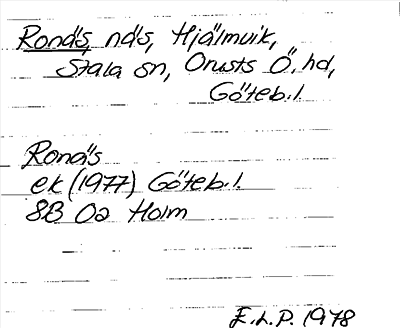 Ronäs, näs, Hjälmvik,
Stala sn, Orusts Ö. hd,
Göteb. l.
Ronäs
ek (1977) Göteb. l.
8B 0a Holm
E.L.P. 1978